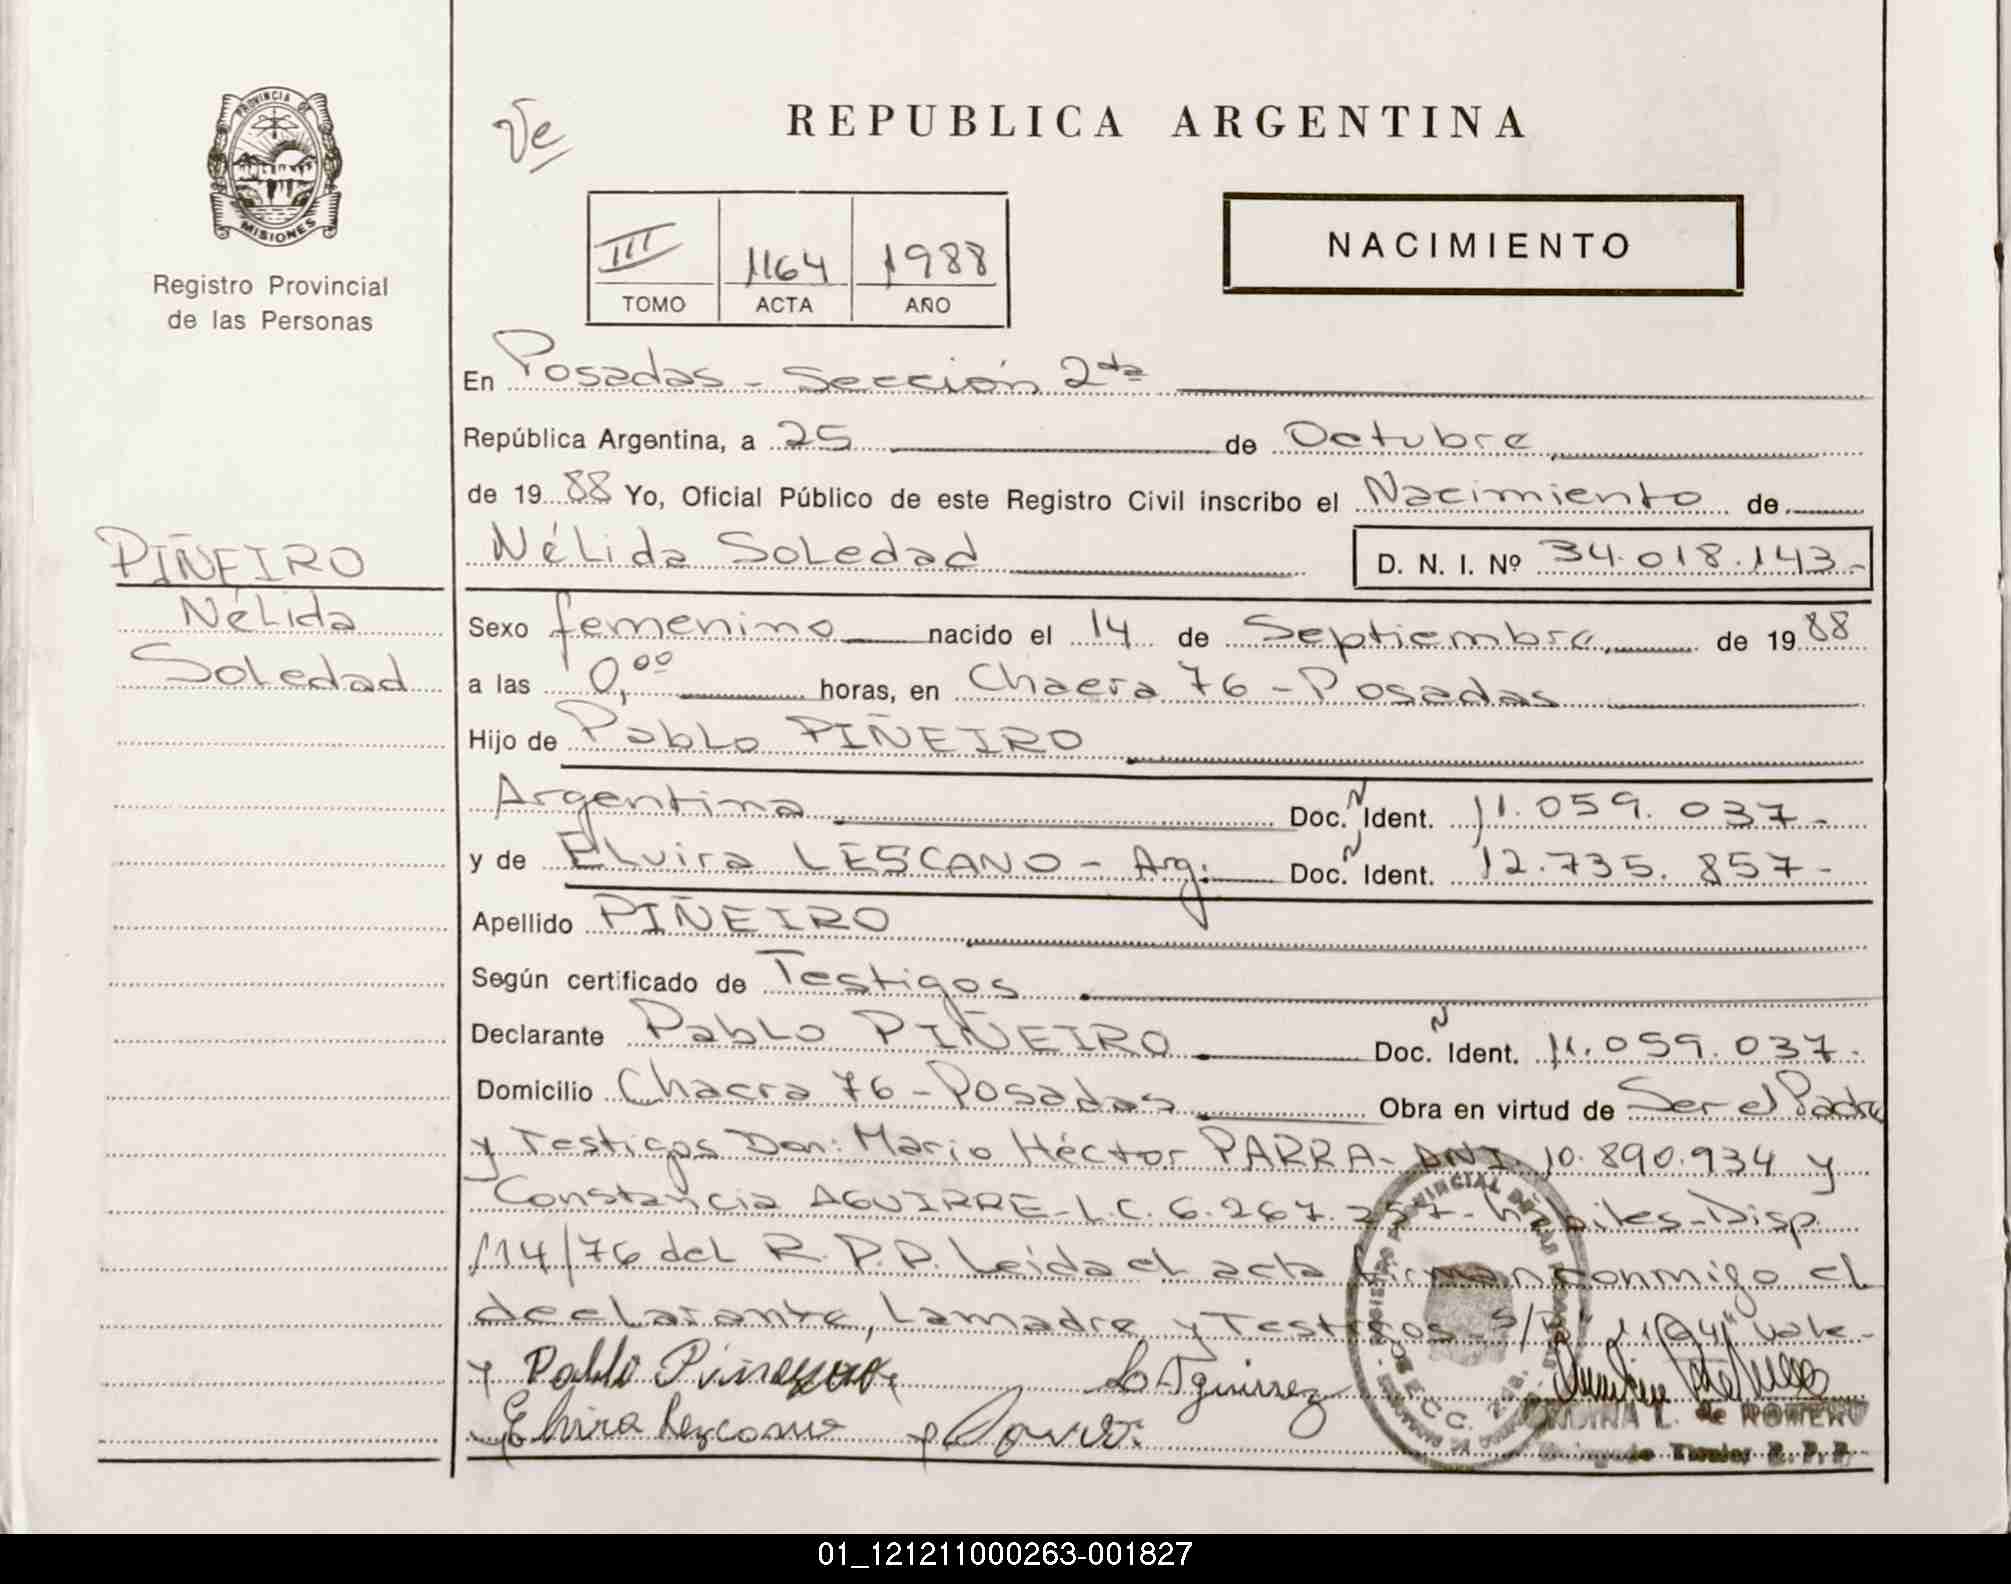 PROVINCIA DE
MISIONES
Registro Provincial
de las Personas
PIÑEIRO
Nélida
Soledad
Ve
REPUBLICA ARGENTINA
III 1164 1988
TOMO ACTA AÑO
NACIMIENTO
En Posadas - Sección 2da
República Argentina, a 25 de Octubre
de 1988 Yo, Oficial Público de este Registro Civil inscribo el Nacimiento de
Nélida Soledad D. N. I. Nº 34.018.143.-
Sexo femenino nacido el 14 de Septiembre de 1988
a las 0,00 horas, en Chacra 76 - Posadas
Hijo de Pablo PIÑEIRO
Argentina Doc. N Ident. 11.059.037-
y de Elvira LESCANO - Arg. Doc. N Ident. 12.735.857-
Apellido PIÑEIRO
Según certificado de Testigos
Declarante Pablo PIÑEIRO Doc. N Ident. 11.059.037.
Domicilio Chacra 76 - Posadas Obra en virtud de Ser el Padre
y Testigos Don: Mario Héctor PARRA - DNI 10.890.934 y
Constancia AGUIRRE - L.C. 6.267.257- hábiles - Disp
114/76 del R.P.P. Leida el acta firman conmigo el
declarante, la madre y Testigos - S/R "1164" vale-
Pablo Piñeyro
Elvira Lezcano
de ROMERO
R. P. P.
01_121211000263-001827